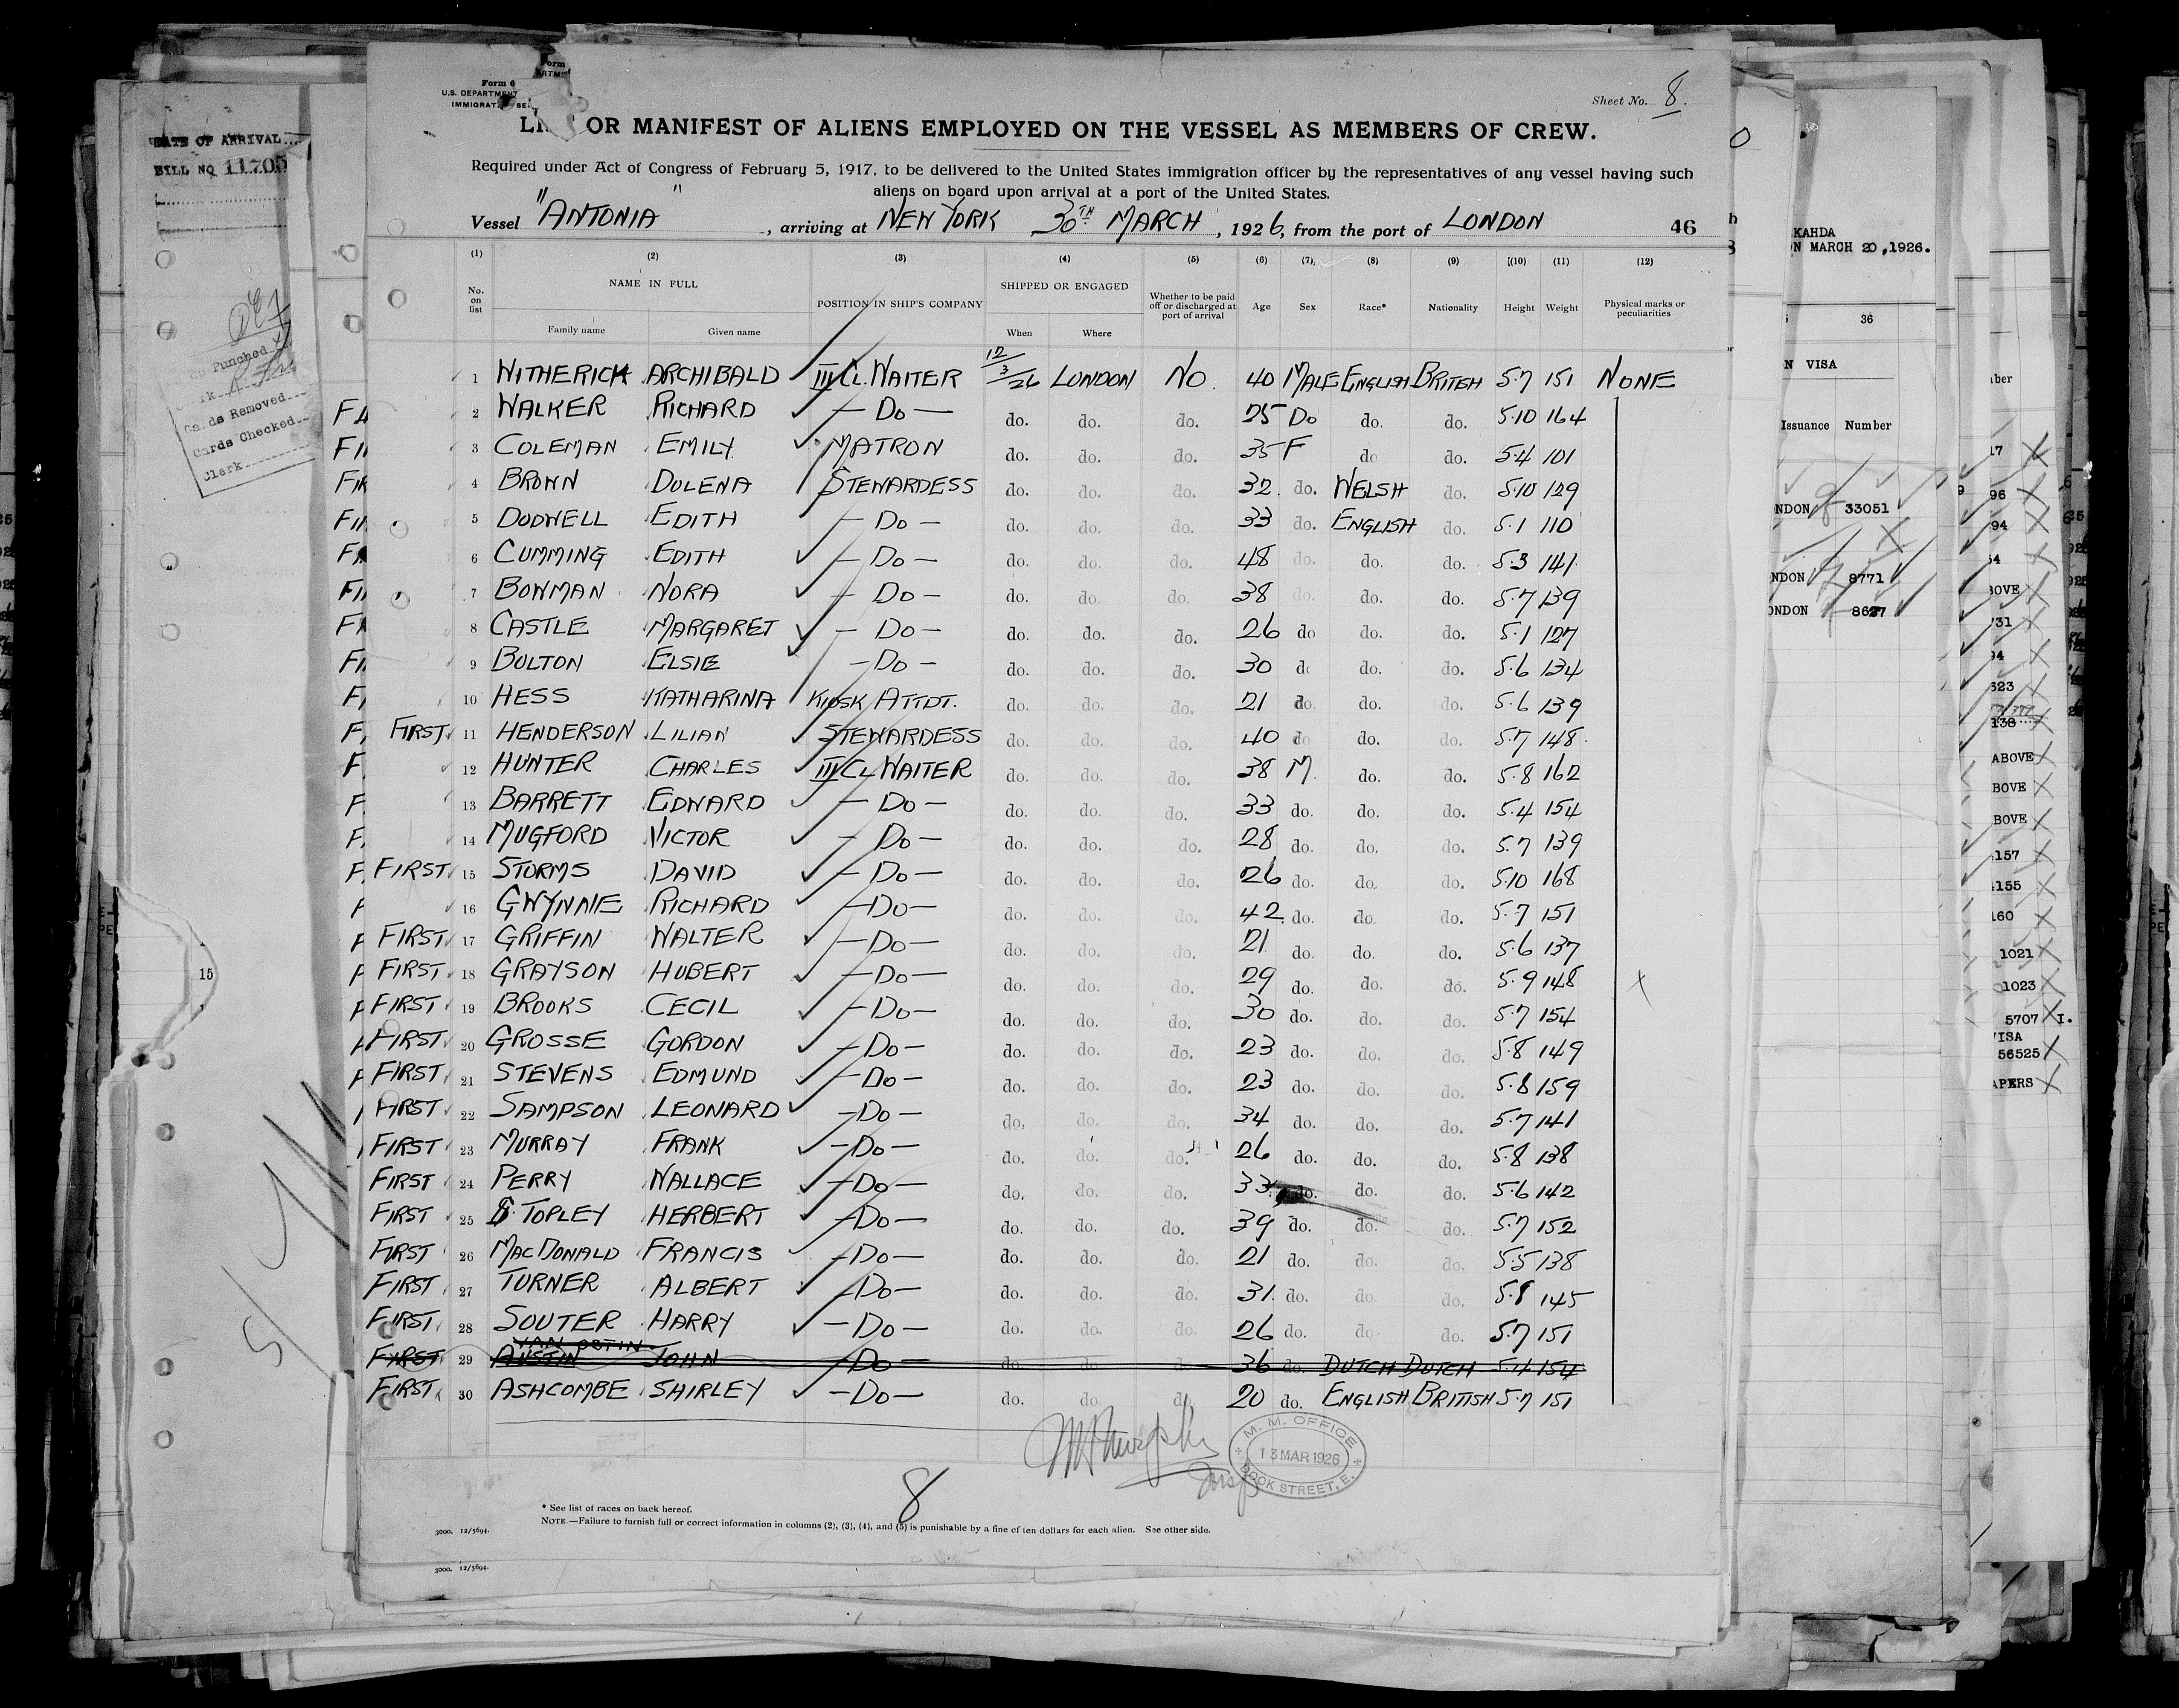 Form 6
U.S. DEPARTMENT
Sheet No. 8.
OR MANIFEST OF ALIENS EMPLOYED ON THE VESSEL AS MEMBERS OF CREW.
Required under Act of Congress of February 5, 1917, to be delivered to the United States immigration officer by the representatives of any vessel having such
aliens on board upon arrival at a port of the United States.
Vessel "ANTONIA", arriving at NEW YORK 30TH MARCH, 1926, from the port of LONDON 46
(1) (2) (3) (4) (5) (6) (7) (8) (9) (10) (11) (12)
No. on list NAME IN FULL POSITION IN SHIP'S COMPANY SHIPPED OR ENGAGED Whether to be paid off or discharged at port of arrival Age Sex Race* Nationality Height Weight Physical marks or peculiarities
Family name Given name When Where
1 WITHERICK ARCHIBALD III CL. WAITER 12/3/26 LONDON NO. 40 MALE ENGLISH BRITISH 5.7 151 NONE
2 WALKER RICHARD - DO - do. do. do. 25 DO do. do. 5.10 164
3 COLEMAN EMILY MATRON do. do. do. 35 F do do. 5.4 101
4 BROWN DOLENA STEWARDESS do. do. do. 32 do. WELSH do. 5.10 129
5 DODWELL EDITH - DO - do. do. do. 33 do. ENGLISH do. 5.1 110
6 CUMMING EDITH - DO - do. do. do. 48 do. do. do. 5.3 141
7 BOWMAN NORA - DO - do. do. do. 38 do. do. do. 5.7 139
8 CASTLE MARGARET - DO - do. do. do. 26 do do. do. 5.1 127
9 BOLTON ELSIE - DO - do. do. do. 30 do. do. 5.6 134
10 HESS KATHARINA KIOSK ATTDT. do. do. do. 21 do. do. do. 5.6 139
FIRST 11 HENDERSON LILIAN STEWARDESS do. do. do. 40 do do. do. 5.7 148
12 HUNTER CHARLES III CL WAITER do. do. do. 38 M. do. do. 5.8 162
13 BARRETT EDWARD - DO - do. do. do. 33 do. do. do. 5.4 154
14 MUGFORD VICTOR - DO - do. do. do. 28 do. do. do. 5.7 139
FIRST 15 STORMS DAVID - DO - do. do. do. 26 do. do. do. 5.10 168
16 GWYNNE RICHARD - DO - do. do. do. 42 do. do. do. 5.7 151
FIRST 17 GRIFFIN WALTER - DO - do. do. do. 21 do. do. do. 5.6 137
FIRST 18 GRAYSON HUBERT - DO - do. do. do. 29 do. do. do. 5.9 148
FIRST 19 BROOKS CECIL - DO - do. do. do. 30 do. do. do. 5.7 154
FIRST 20 GROSSE GORDON - DO - do. do. do. 23 do. do. do. 5.8 149
FIRST 21 STEVENS EDMUND - DO - do. do. do. 23 do. do. do. 5.8 159
FIRST 22 SAMPSON LEONARD - DO - do. do. do. 34 do. do. do. 5.7 141
FIRST 23 MURRAY FRANK - DO - do. do. do. 26 do. do. do. 5.8 138
FIRST 24 PERRY WALLACE - DO - do. do. do. 33 do. do. do. 5.6 142
FIRST 25 TOPLEY HERBERT - DO - do. do. do. 39 do. do. do. 5.7 152
FIRST 26 MACDONALD FRANCIS - DO - do. do. do. 21 do. do. do. 5.5 138
FIRST 27 TURNER ALBERT - DO - do. do. do. 31 do. do. do. 5.8 145
FIRST 28 SOUTER HARRY - DO - do. do. do. 26 do. do. do. 5.7 151
VAN OSTIN
FIRST 29 AUSTIN JOHN - DO - do do do 36 do. DUTCH DUTCH 5.4 154
FIRST 30 ASHCOMBE SHIRLEY - DO - do. do. do. 20 do. ENGLISH BRITISH 5.7 151
M. M. OFFICE
13 MAR 1926
DOCK STREET, E.
8
* See list of races on back hereof.
NOTE.—Failure to furnish full or correct information in columns (2), (3), (4), and (5) is punishable by a fine of ten dollars for each alien. See other side.
3000. 12/5694.
3000. 12/5694.
DATE OF ARRIVAL
BILL NO 11705
Punched
Cards Removed
Cards Checked
Clerk
15
KAHDA
N MARCH 20, 1926.
36
N VISA
Issuance Number
NDON 33051
NDON 8771
ONDON 8627
ber
17
96
94
54
BOVE
731
94
623
138
ABOVE
BOVE
BOVE
157
155
160
1021
1023
5707 I.
VISA
56525
APERS